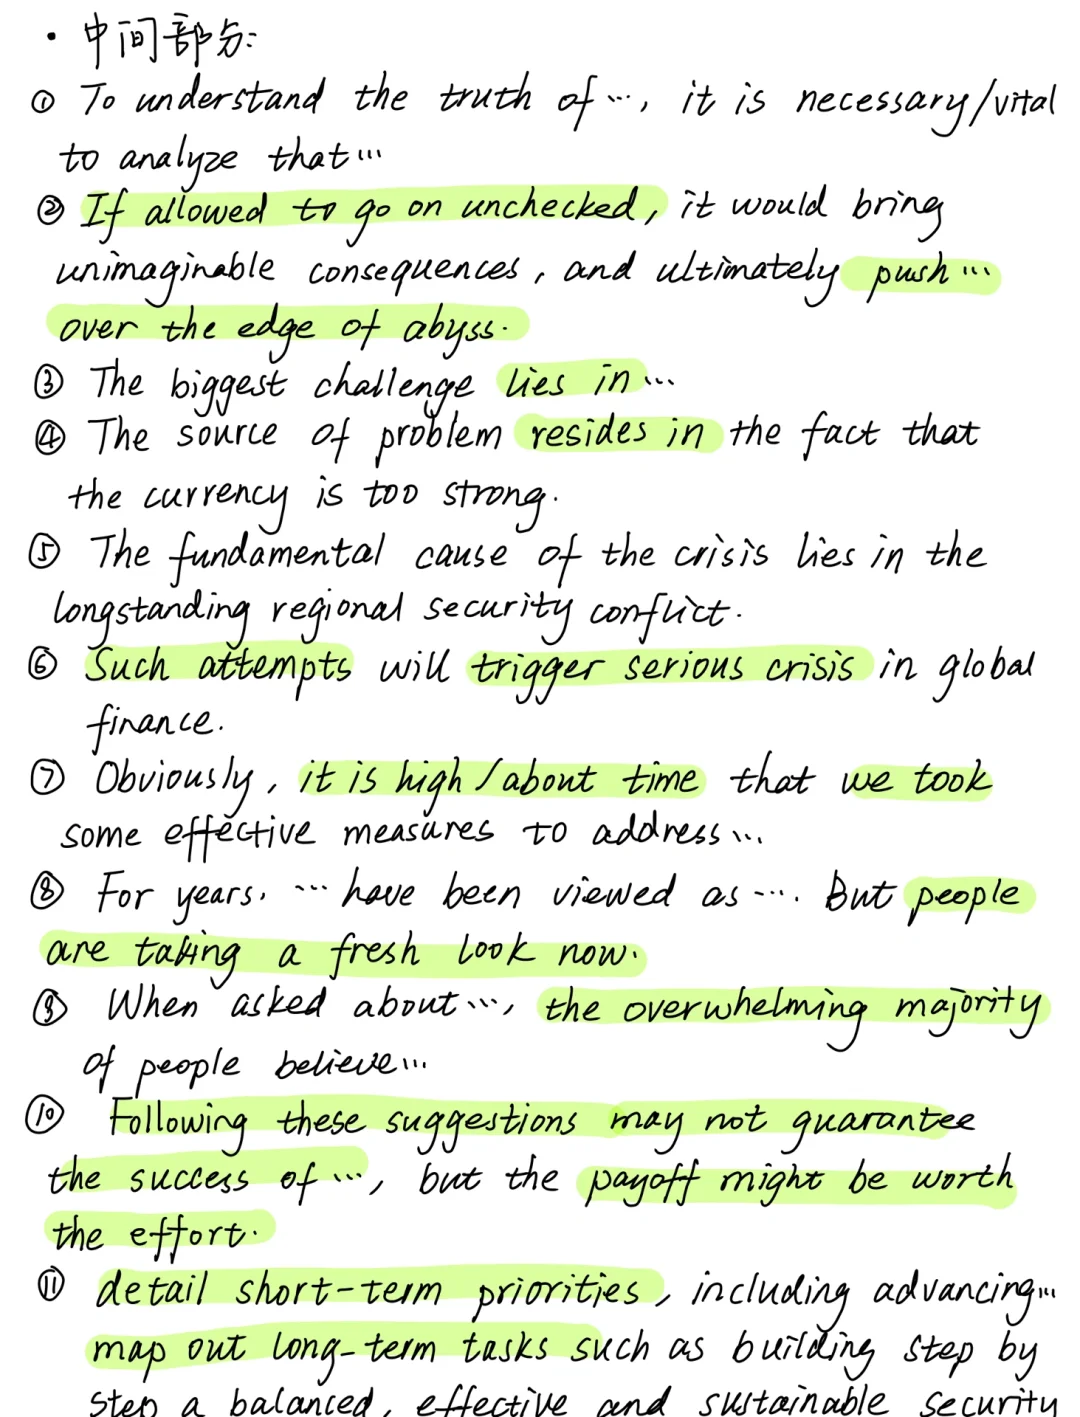 · 中间部分:
① To understand the truth of ..., it is necessary/vital
to analyze that ...
② If allowed to go on unchecked, it would bring
unimaginable consequences, and ultimately push ...
over the edge of abyss.
③ The biggest challenge lies in ...
④ The source of problem resides in the fact that
the currency is too strong.
⑤ The fundamental cause of the crisis lies in the
longstanding regional security conflict.
⑥ Such attempts will trigger serious crisis in global
finance.
⑦ Obviously, it is high/about time that we took
some effective measures to address ...
⑧ For years, ... have been viewed as .... But people
are taking a fresh look now.
⑨ When asked about ..., the overwhelming majority
of people believe ...
⑩ Following these suggestions may not guarantee
the success of ..., but the payoff might be worth
the effort.
⑪ detail short-term priorities, including advancing ...
map out long-term tasks such as building step by
step a balanced, effective and sustainable security